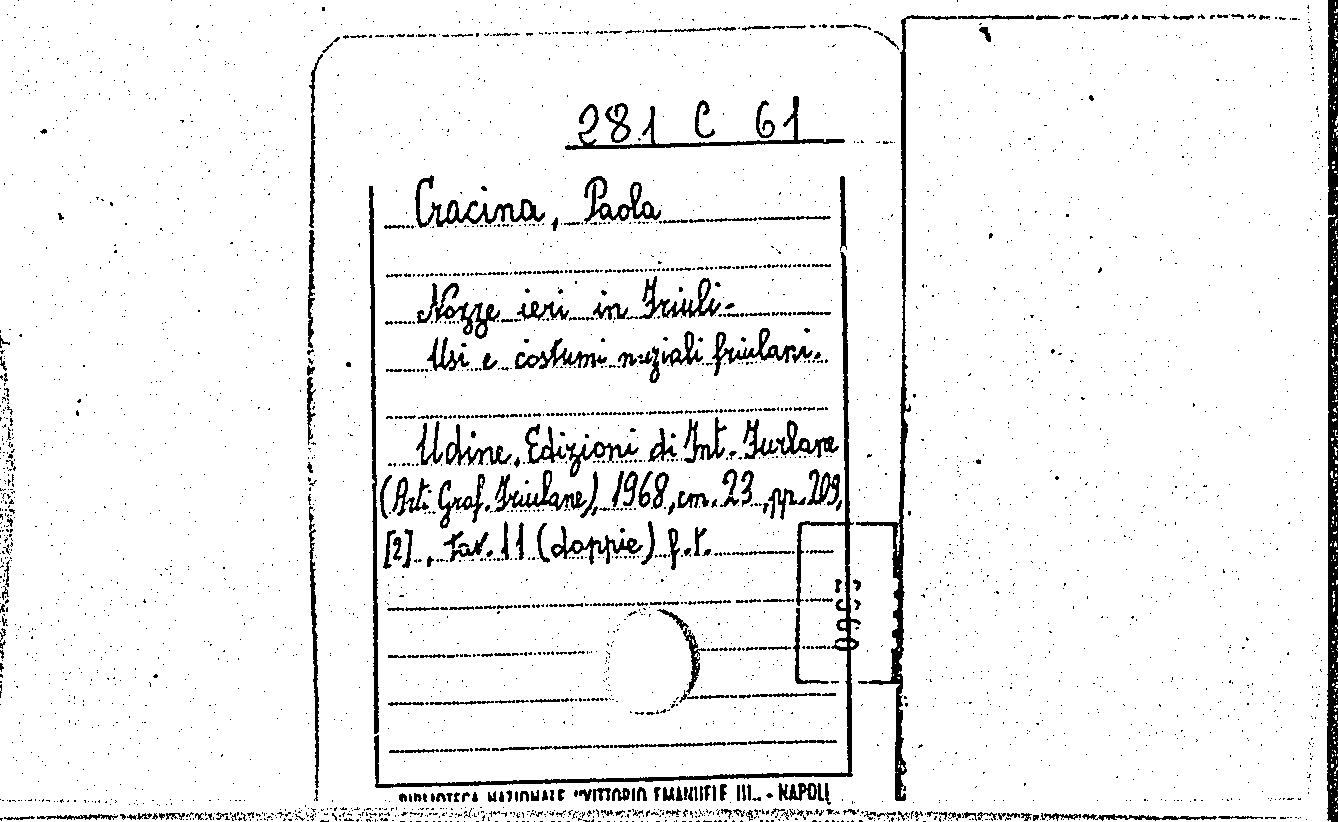 281 C 61
Cracina, Paola
Nozze ieri in Friuli-
Usi e costumi nuziali friulani.
Udine, Edizioni di Int. Furlane
(Arti Graf. Friulane), 1968, cm. 23, pp. 209,
[2], tav. 11 (doppie) f.t.
BIBLIOTECA NAZIONALE "VITTORIO EMANUELE III" - NAPOLI